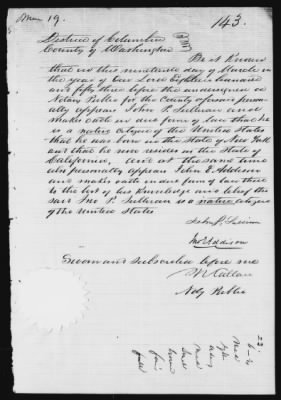 Mar 19.
143.
District of Columbia
County of Washington
Be it Known
that on this nineteenth day of March in
the year of our Lord Eighteen hundred
and fifty three before the undersigned a
Notary Public for the County aforesaid perso-
nally appears John P. Sullivan and
makes oath in due form of law that he
is a native citizen of the United States
that he was born in the State of New York
and that he now resides in the State of
California, and at the same time
also personally appears John E. Addison
and makes oath in due form of law that
to the best of his Knowledge and belief the
said Jno P. Sullivan is a native citizen of
the United States
John P. Sullivan
Jno Addison
Sworn and Subscribed before me
N Callan
Noty Public